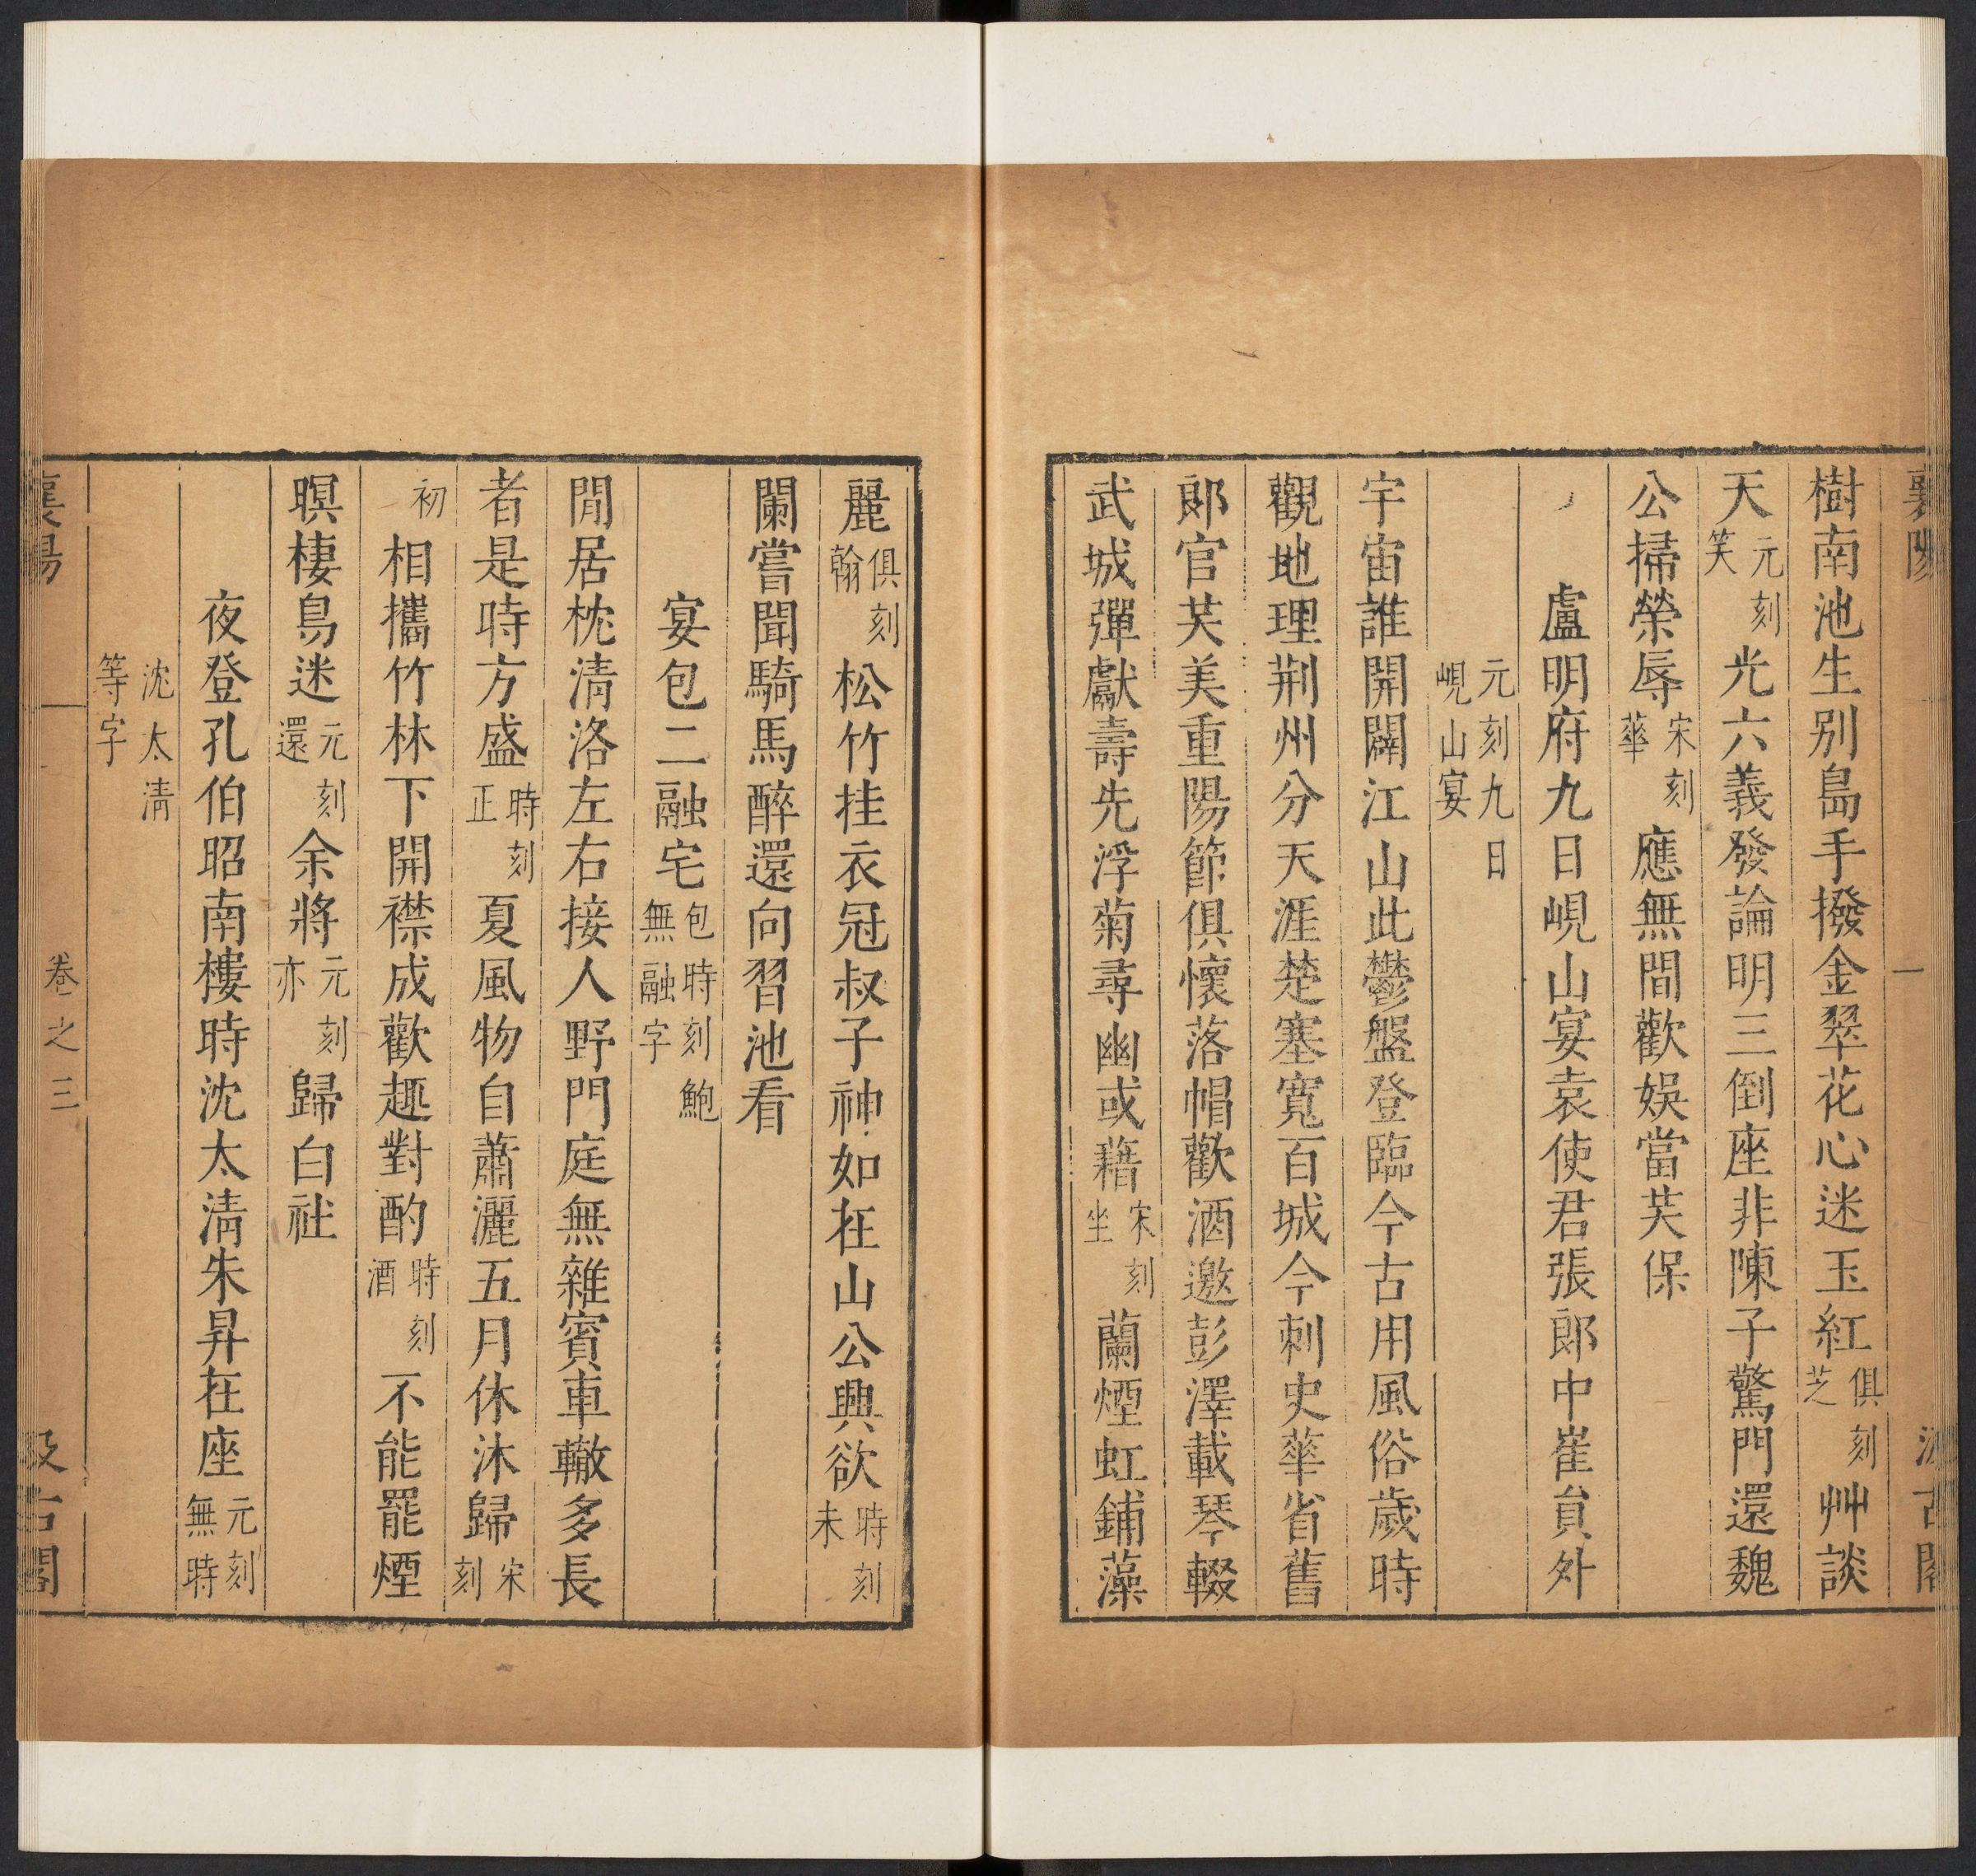 樹南池生别島手撥金翠花心迷玉紅俱刻芝艸談
天元刻笑光六義發論明三倒座非陳子驚門還魏
公掃榮辱宋刻華應無間歡娛當芙保
盧明府九日峴山宴袁使君張郎中崔員外
元刻九日峴山宴
宇宙誰開闢江山此鬱盤登臨今古用風俗歲時
觀地理荆州分天涯楚塞寬百城今刺史華省舊
郎官芙美重陽節俱懷落帽歡酒邀彭澤載琴輟
武城彈獻壽先浮菊尋幽或藉宋刻坐蘭煙虹鋪藻
麗俱刻翰松竹挂衣冠叔子神如在山公興欲時刻未
闌嘗聞騎馬醉還向習池看
宴包二融宅包時刻鮑無融字
閒居枕清洛左右接人野門庭無雜賓車轍多長
者是時方盛時刻正夏風物自蕭灑五月休沐歸宋刻
初相攜竹林下開襟成歡趣對酌時刻酒不能罷煙
暝棲鳥迷元刻還余將元刻亦歸白社
夜登孔伯昭南樓時沈太清朱昇在座元刻無時
沈太清等字
襄陽
卷之三
汲古閣